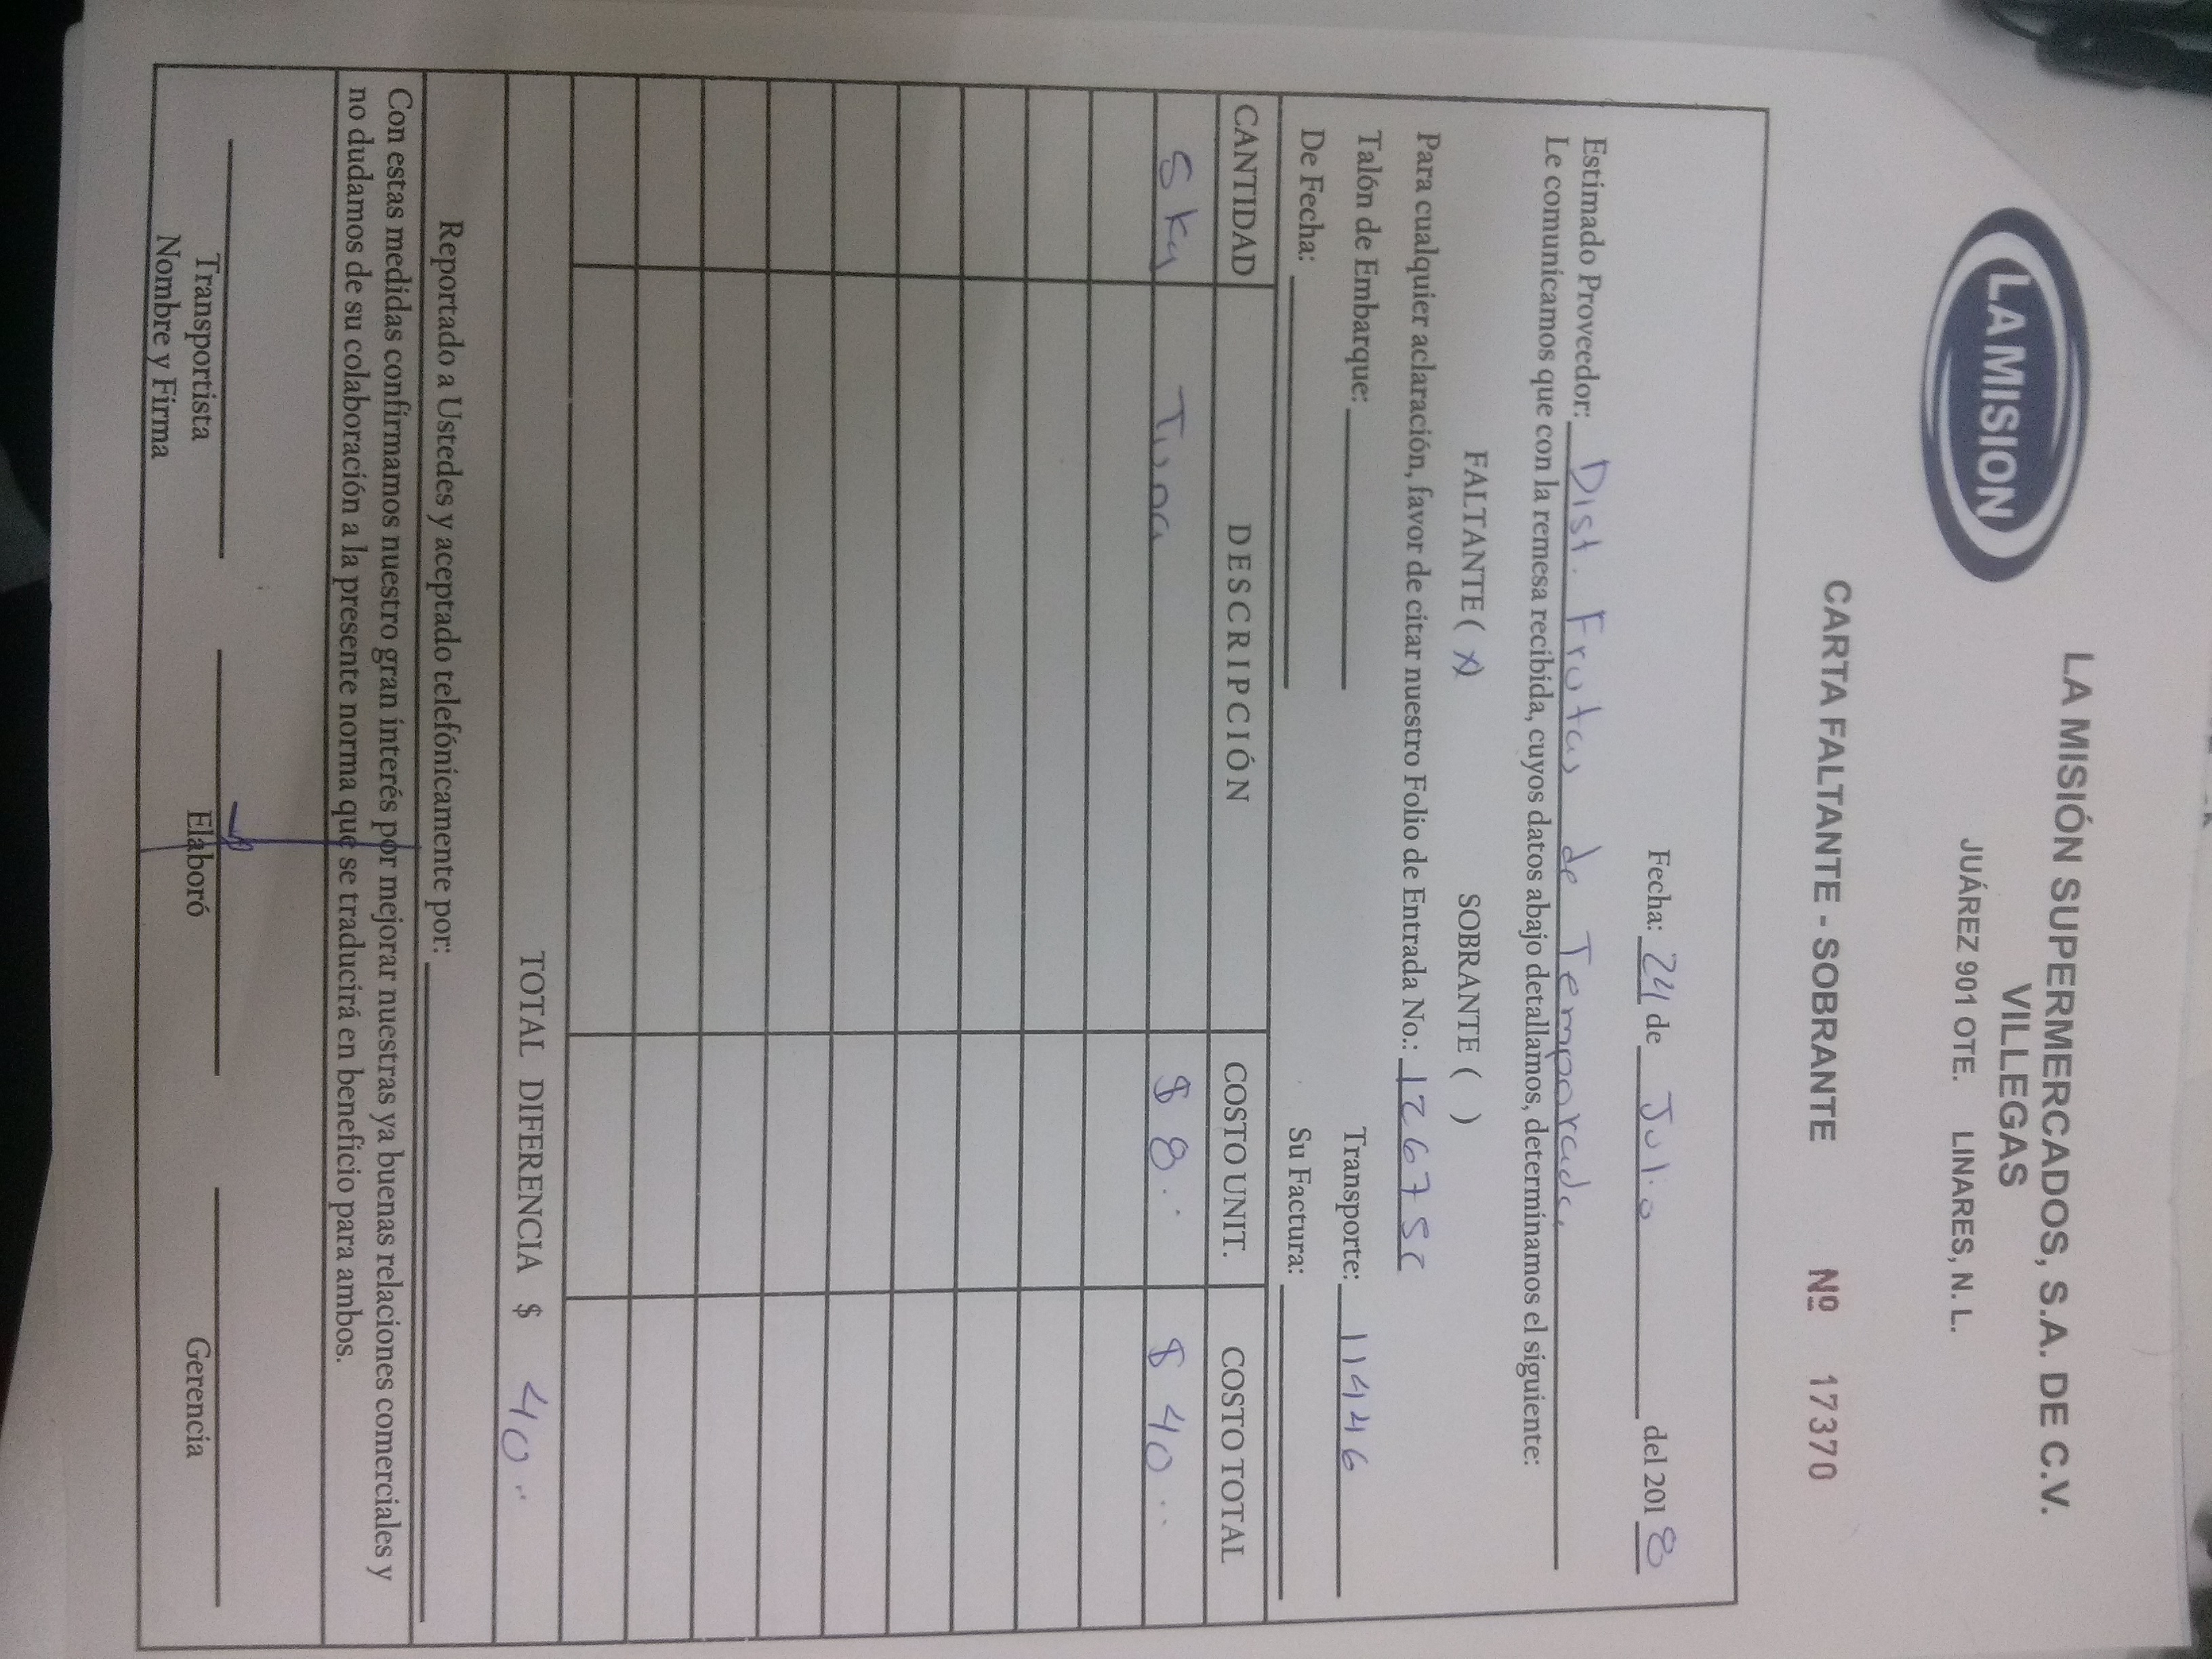 LA MISION
LA MISIÓN SUPERMERCADOS, S.A. DE C.V.
VILLEGAS
JUÁREZ 901 OTE. LINARES, N. L.
CARTA FALTANTE - SOBRANTE Nº 17370
Fecha: 24 de Julio del 2018
Estimado Proveedor: Dist. Frutas de Temporada
Le comunicamos que con la remesa recibida, cuyos datos abajo detallamos, determinamos el siguiente:
FALTANTE ( x ) SOBRANTE ( )
Para cualquier aclaración, favor de citar nuestro Folio de Entrada No.: 12675c
Talón de Embarque: Transporte: 11446
De Fecha: Su Factura:
CANTIDAD DESCRIPCIÓN COSTO UNIT. COSTO TOTAL
5 kg Tuna $ 8.. $ 40..
TOTAL DIFERENCIA $ 40..
Reportado a Ustedes y aceptado telefónicamente por:
Con estas medidas confirmamos nuestro gran interés por mejorar nuestras ya buenas relaciones comerciales y
no dudamos de su colaboración a la presente norma que se traducirá en beneficio para ambos.
Transportista Elaboró Gerencia
Nombre y Firma